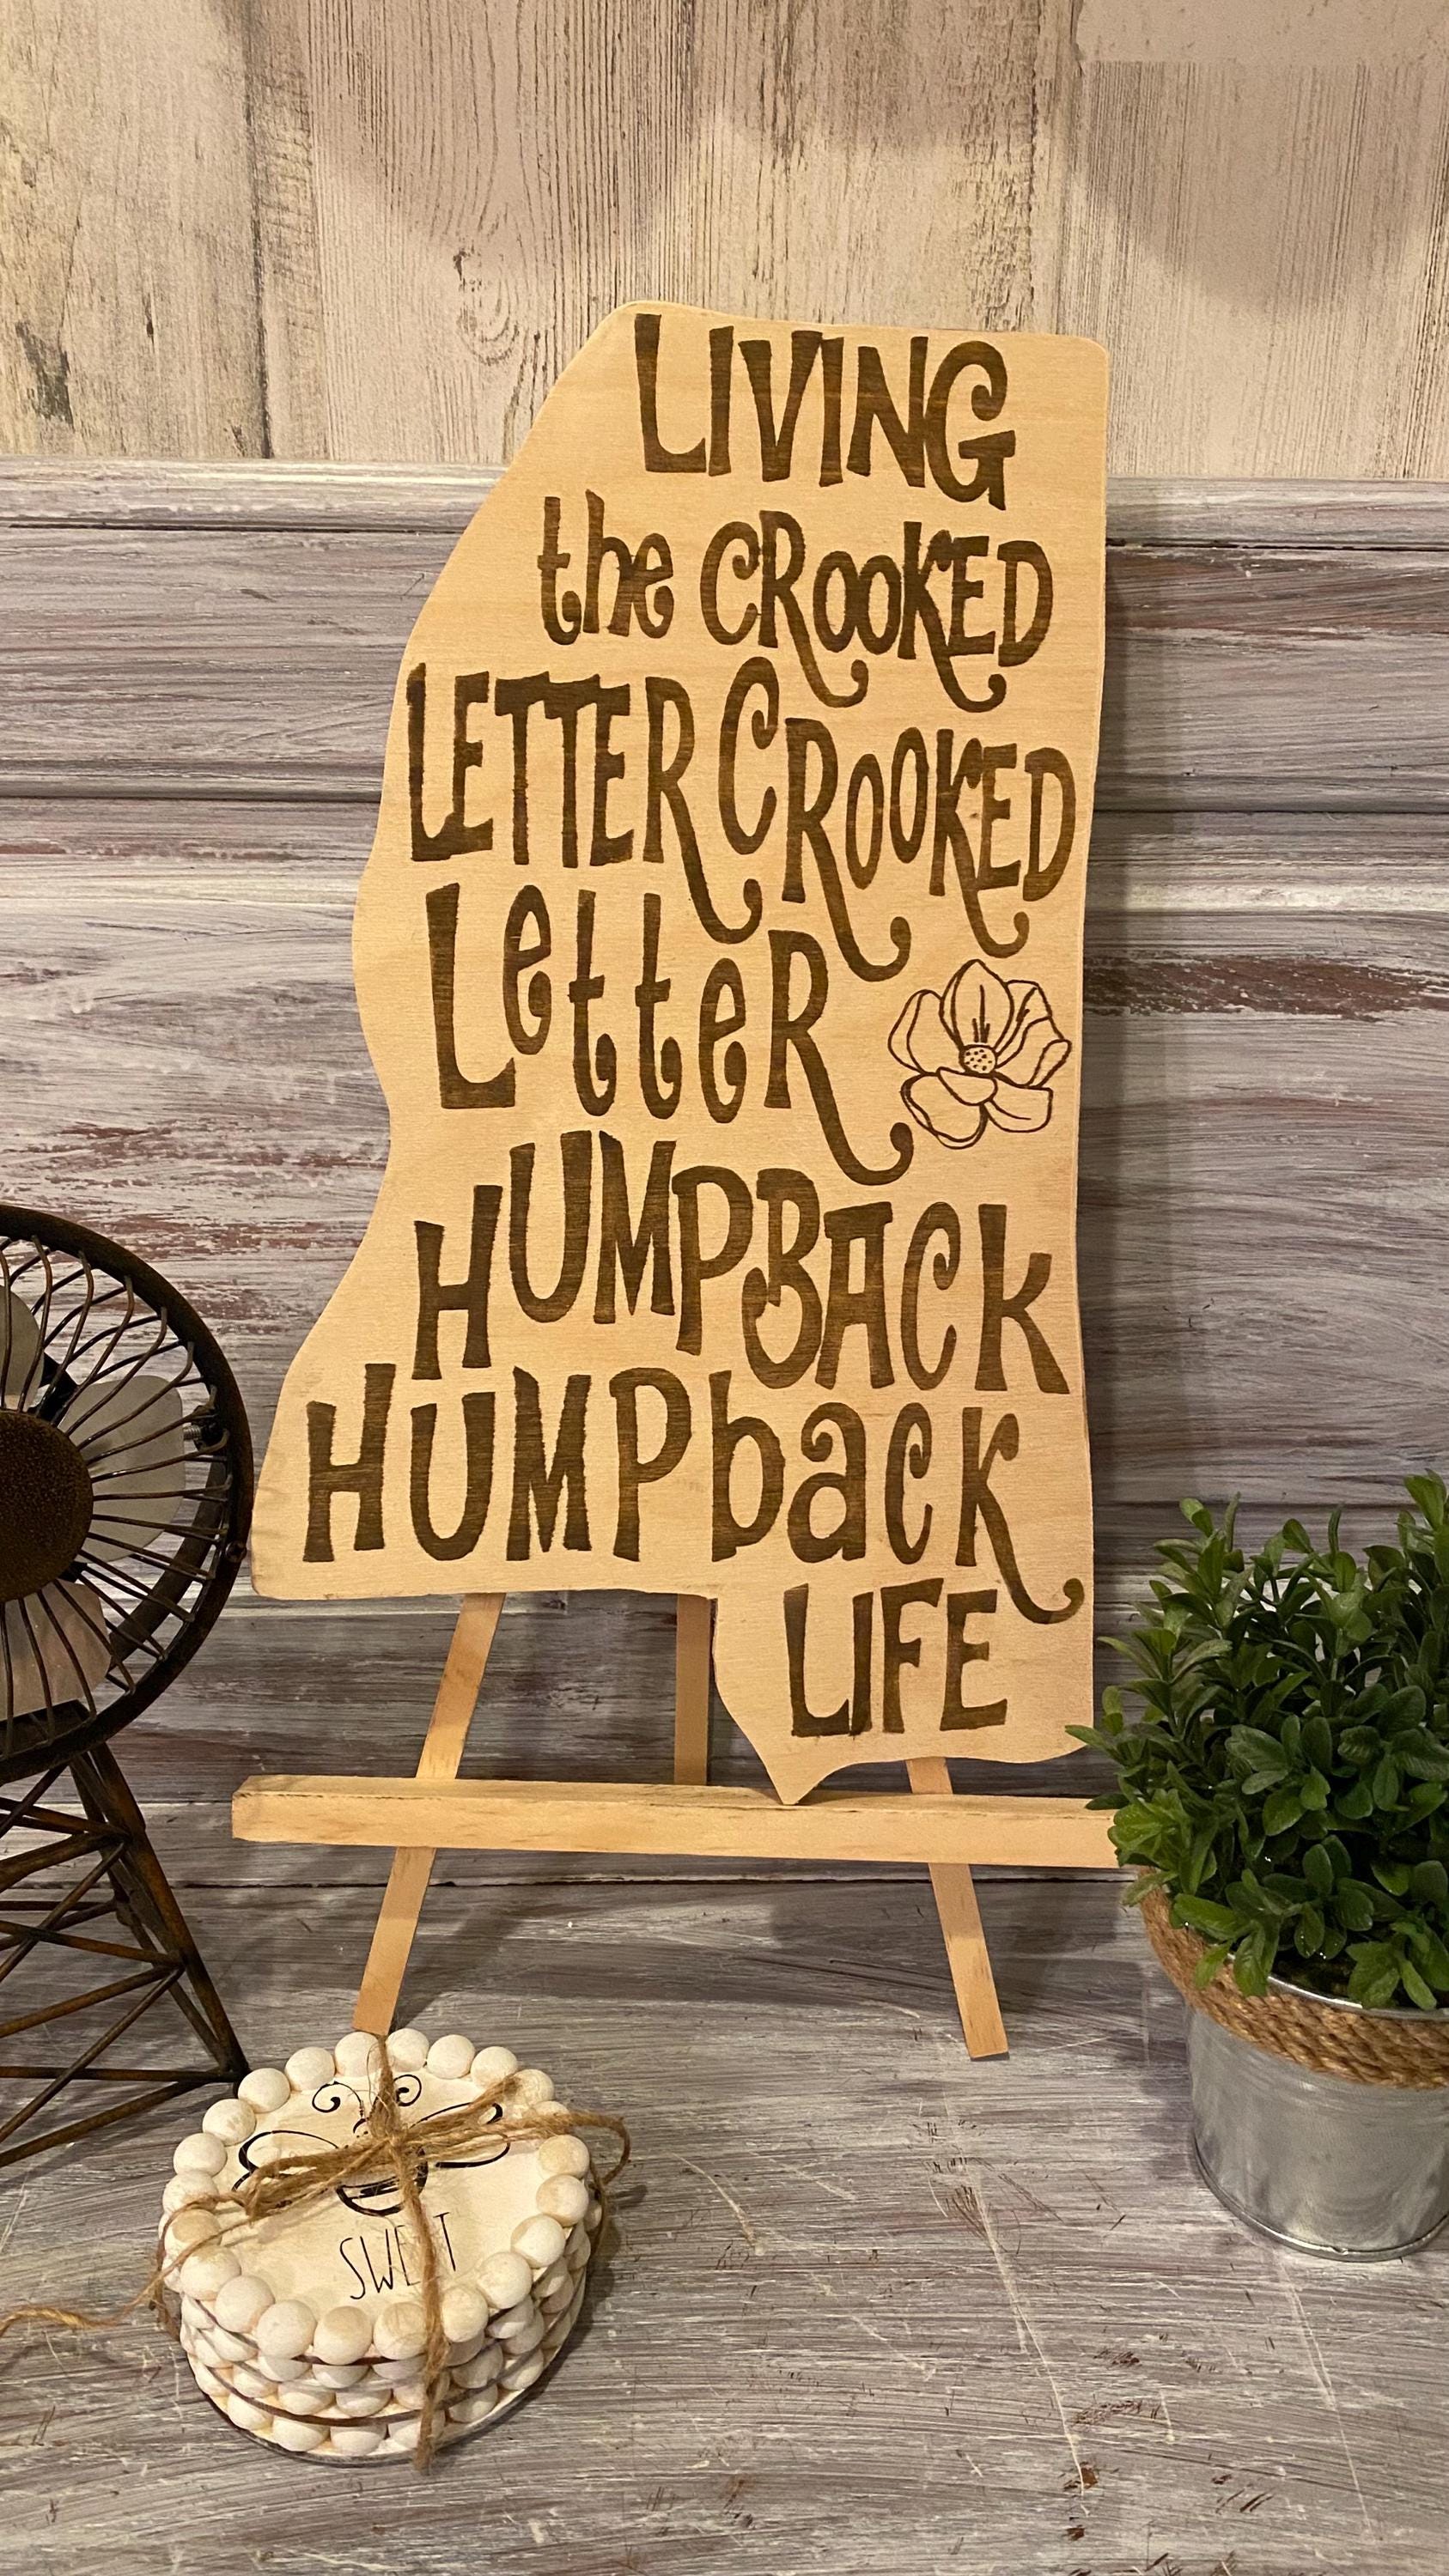 LIVING
the CRooKED
LETTER CRooKED
LetteR
HUMPBACK
HUMPback
LIFE
SWEET